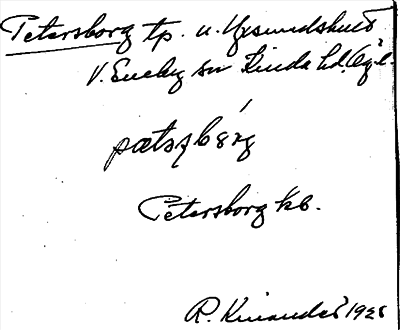 Petersborg tp. u. Yxsundshult
V. Eneby sn Kinda hd. Ög l.
pætaʂbórg
Petersborg kb.
R. Kinander 1928